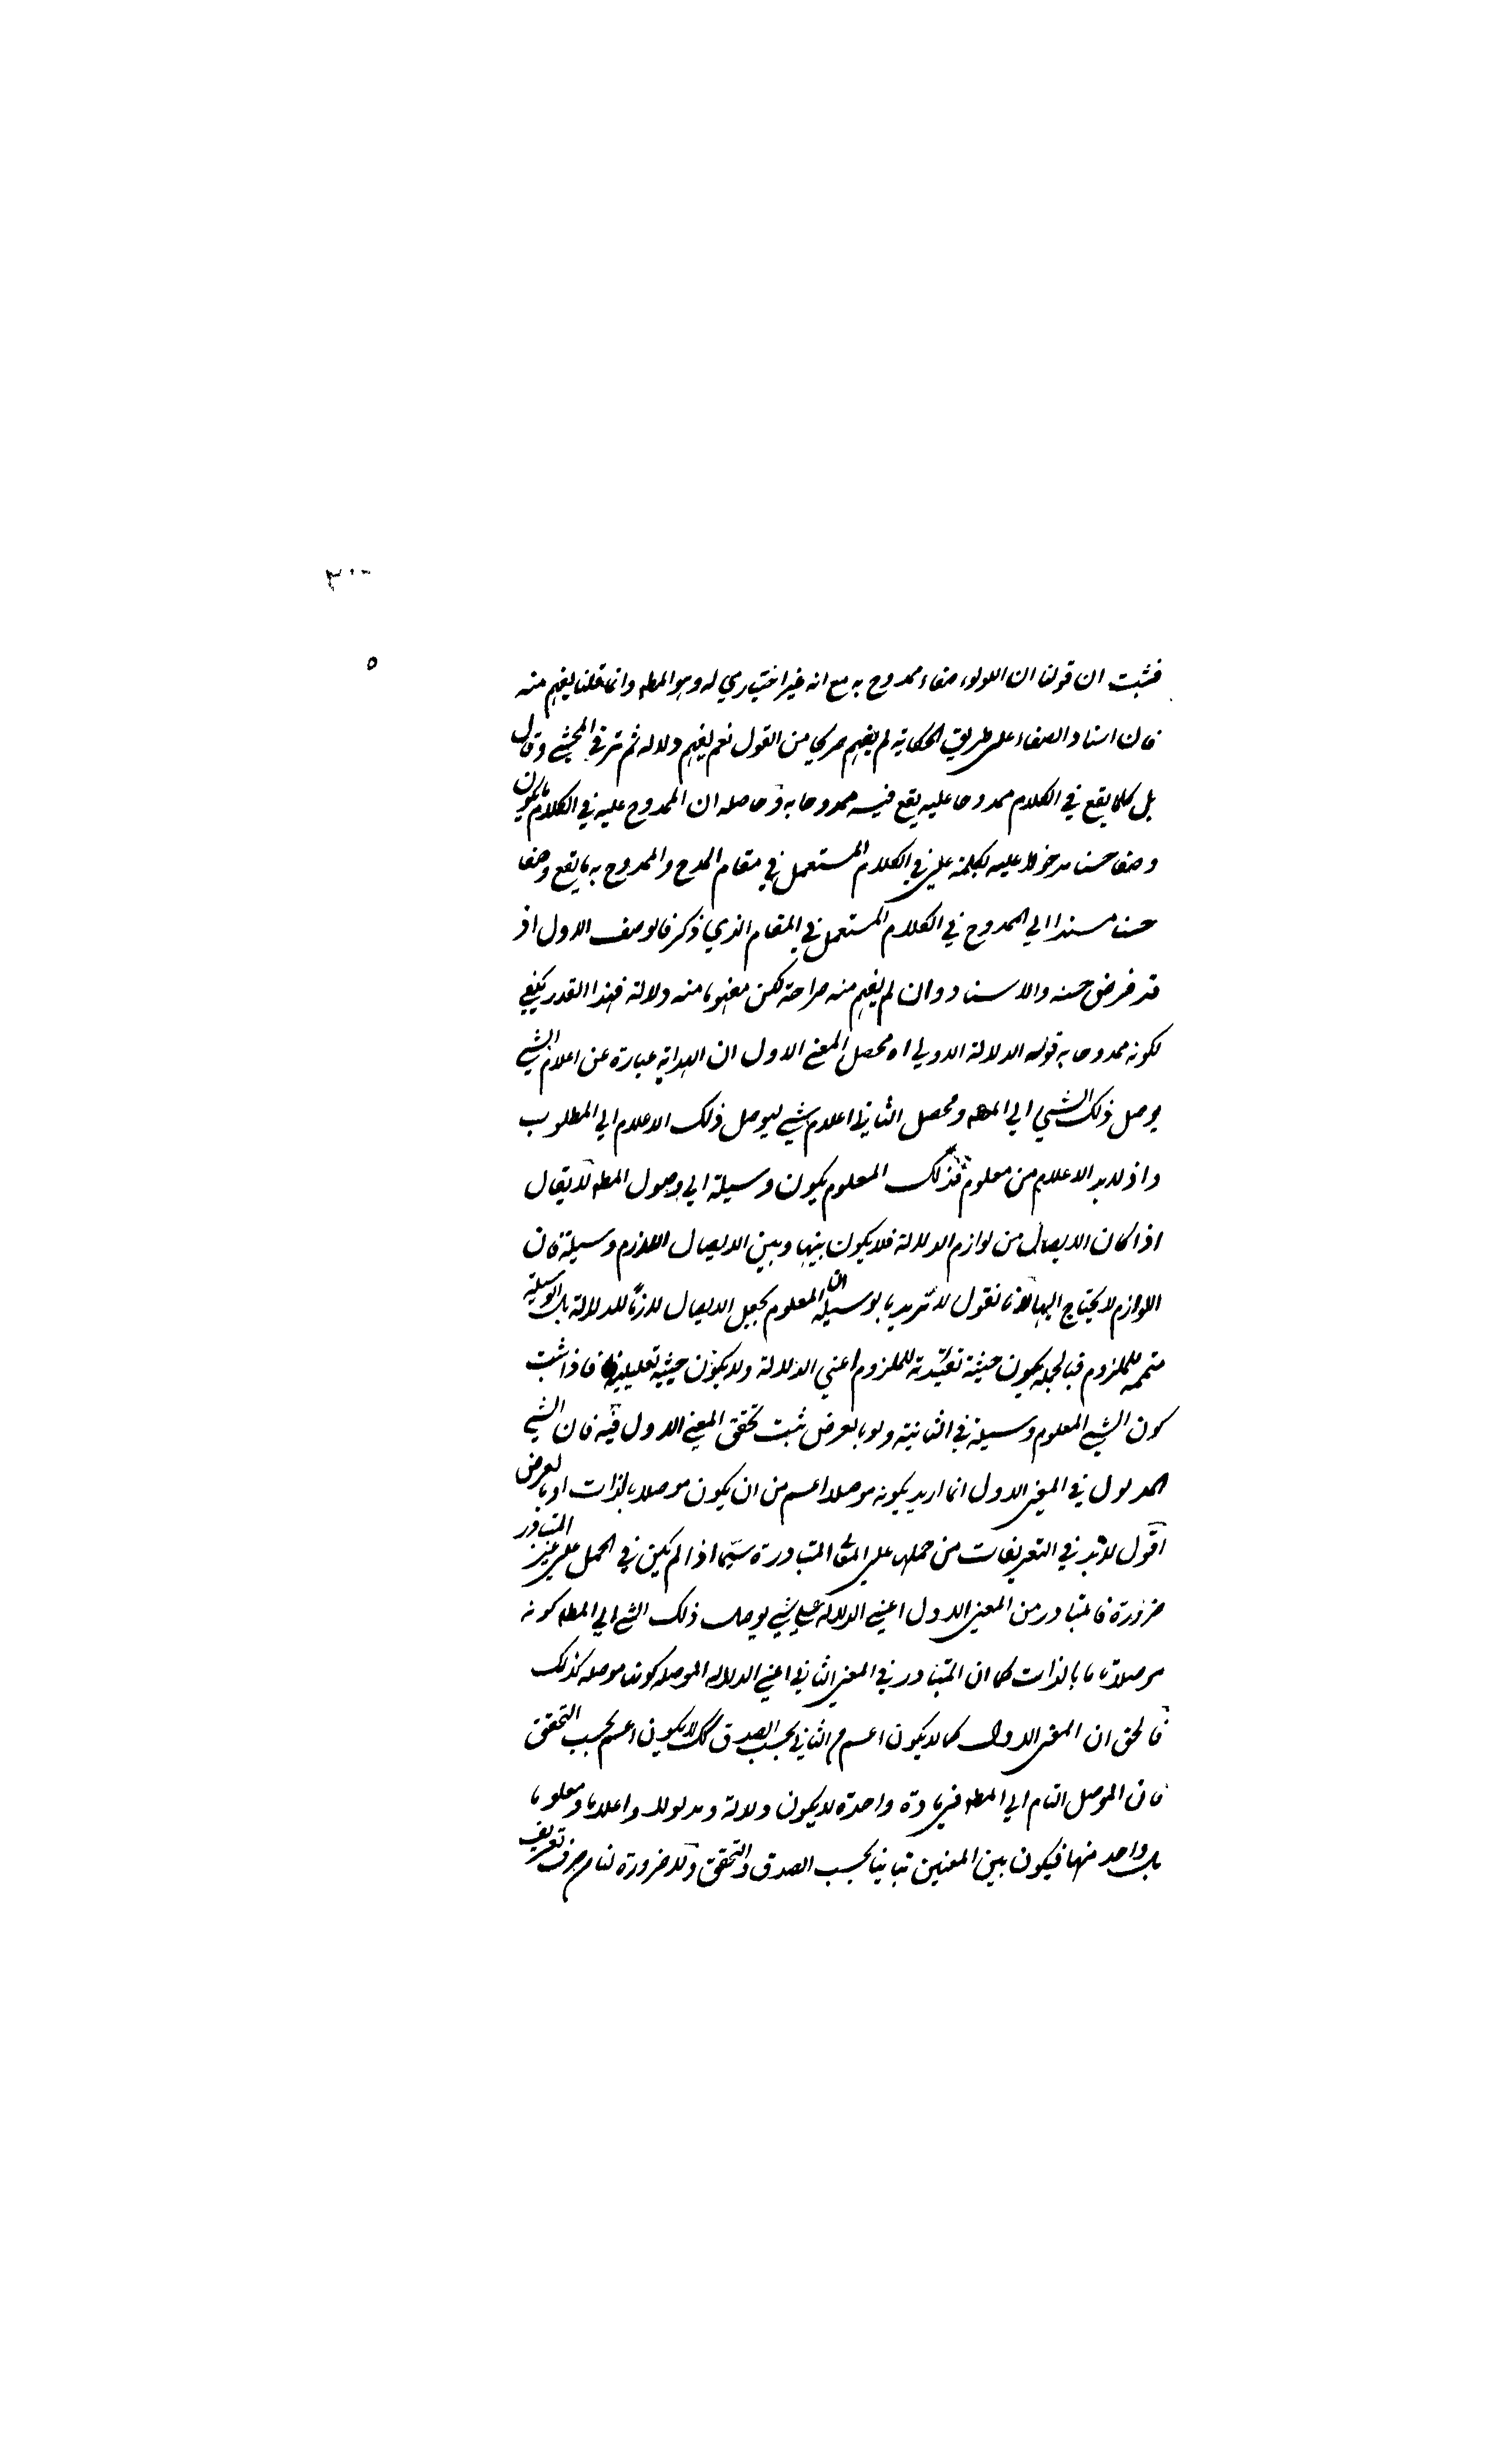 ٣٠٠
٥
فثبت ان قولنا ان اللولوء صفاء ممدوح به مع انه غير اختياري له وهو المطه وانما قلنا يفهم منه
فان اسناد الصفاء على طريق الحكاية لم يفهم صريحا من القول نعم يفهم دلاله ثم ترقي المحشي وقال
بل كلما يقع في الكلام ممدوحا عليه يقع فيه ممدوحا به وحاصله ان الممدوح عليه في الكلام ما يكون
وصفا حسنا مدخولا عليه لكلمة على في الكلام المستعمل في مقام المدح والممدوح به ما يقع وصفا
حسنا مسندا الي الممدوح في الكلام المستعمل في المقام الذي ذكر فالوصف الاول اذ
قد فرض حسنه والاسناد وان لم يفهم منه صراحة لكن مفهوما منه دلالة فهذا القدر يكفي
لكونه ممدوحا به قوله الدلالة الاولي اه محصل المعني الاول ان الهداية عبارة عن اعلام الشي
يوصل ذلك الشي الي المطه ومحصل الثاني اعلام شي ليوصل ذلك الاعلام الي المطلوب
واذ لابد الاعلام من معلوم فذلك المعلوم يكون وسيلة الي وصول المطه لا يقال
اذا كان الايصال من لوازم الدلالة فلا يكون بينها وبين الايصال اللازم وسيلة فان
اللوازم لا يحتاج اليها لانا نقول لا نريد بالوسيلة ان المعلوم يجعل الايصال لازما للدلالة بل الوسيلة
متممه للملزوم فبالجمله يكون حيثية تقييدية للملزوم اعني الدلالة ولا يكون حيثيه تعليليه فاذا ثبت
كون الشي المعلوم وسيلة في الثانية ولو بالعرض ثبت تحقق المعني الاول فيه فان الشي
المدلول في المعني الاول انما اريد بكونه موصلا اعم من ان يكون موصلا بالذات او بالعرض
اقول لابد في التعريفات من حملها علي المعاني المتبادرة سيما اذا لم يكن في الحمل علي غير المتبادر
ضرورة فالمتبادر من المعني الاول اعني الدلالة علي شي يوصل ذلك الشي الي المطه كونه
موصلا بالذات كما ان المتبادر في المعني الثاني اعني الدلاله الموصله كونها موصله كذلك
فالحق ان المعني الاول كما لا يكون اعم من الثاني بحسب الصدق كك لا يكون اعم بحسب التحقق
فان الموصل التام الي المطه في مادة واحدة لا يكون دلالة ومدلولا واعلاما ومعلوما
بل واحد منها فيكون بين المعنين تباينا بحسب الصدق والتحقق ولا ضرورة لنا من صرف تعريف